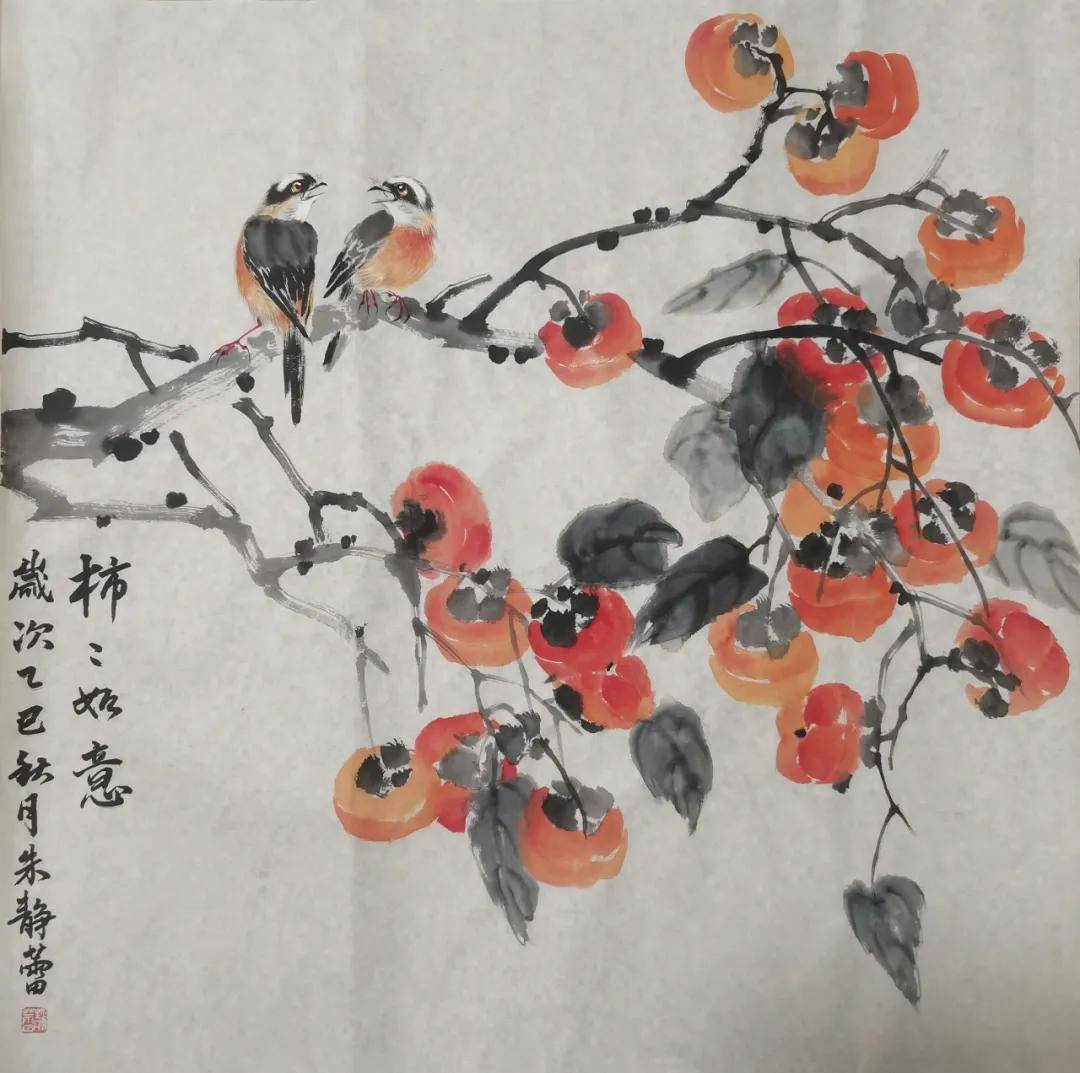 柿〻如意
歲次乙巳秋月朱静蕾